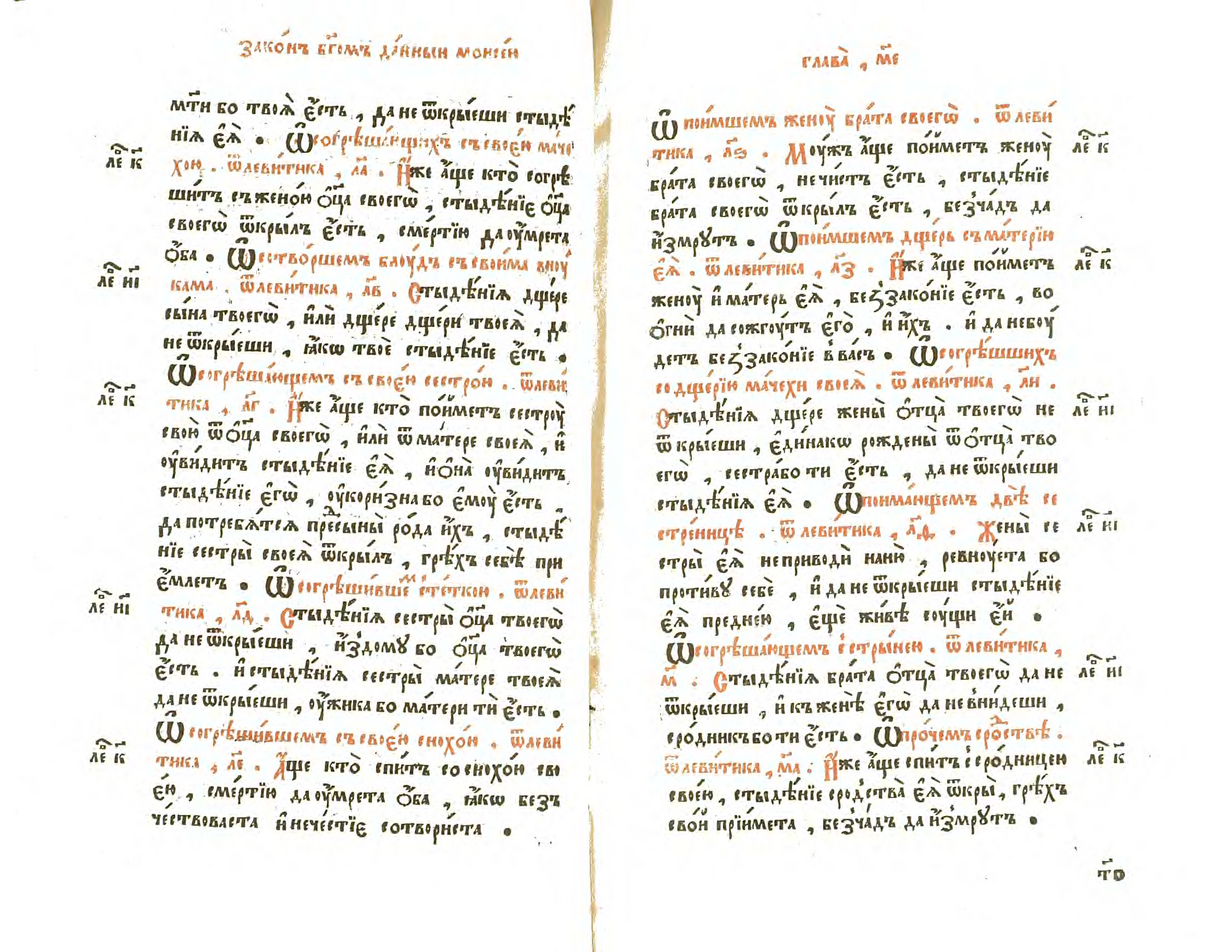 Зако́нъ бг҃омъ да́нныи мои҆се́и
мт҃и бо твоѧ̀ є҆́сть , да не ѿкры́еши стыдѣ́
нїѧ є҆ѧ̀ . Ѡ҆согрѣша́ющихъ съсвое́ю маче
хою . ѿлеви́тика , л҃а . И҆́же а҆́ще кто̀ согрѣ
ши́тъ съжено́ю ѻ҆ц҃а̀ своегѡ̀ , стыдѣ́нїе ѻ҆ц҃а̀
своегѡ̀ ѿкры́лъ є҆́сть , сме́ртїю да оу҆́мрета
ѻ҆́ба . Ѡ҆створшемъ блоу́дъ съсвои́ма вноу́
кама . ѿлеви́тика , л҃в . Стыдѣ́нїѧ дще́ре
сы́на твоегѡ̀ , и҆лѝ дще́ре дще́ри твоеѧ̀ , да
не ѿкры́еши , ꙗ҆́кѡ твоѐ стыдѣ́нїе є҆́сть .
Ѡ҆согрѣша́ющемъ съсвое́ю сестро́ю . ѿлеви́
тика , л҃г . И҆́же а҆́ще кто̀ по́иметъ сестроу̀
свою̀ ѿ ѻ҆ц҃а̀ своегѡ̀ , и҆лѝ ѿ ма́тере своеѧ̀ , и҆
оу҆ви́дитъ стыдѣ́нїе є҆ѧ̀ , и҆ ѻ҆на̀ оу҆ви́дитъ
стыдѣ́нїе є҆гѡ̀ , оу҆кори́зна бо є҆моу̀ є҆́сть ,
да потребѧ́тсѧ предсы́ны ро́да и҆́хъ , стыдѣ́
нїе сестры̀ своеѧ̀ ѿкры́лъ , грѣ́хъ себѣ̀ при
є҆́млетъ . Ѡ҆согрѣши́вшемъ сте́ткою . ѿлеви́
тика , л҃д . Стыдѣ́нїѧ сестры̀ ѻ҆ц҃а̀ твоегѡ̀
да не ѿкры́еши , и҆здо́мꙋ бо ѻ҆ц҃а̀ твоегѡ̀
є҆́сть . и҆ стыдѣ́нїѧ сестры̀ ма́тере твоеѧ̀
да не ѿкры́еши , оу҆́жика бо ма́тери тѝ є҆́сть .
Ѡ҆согрѣши́вшемъ съсвое́ю снохо́ю . ѿлеви́
тика , л҃е . А҆́ще кто̀ спи́тъ со снохо́ю сво
є́ю , сме́ртїю да оу҆́мрета ѻ҆́ба , ꙗ҆́кѡ безъ
че́ствоваста и҆ нече́стїе сотвори́ста .
ле́ г҃і к҃
ле́ г҃і и҃і
ле́ г҃і к҃
ле́ г҃і и҃і
ле́ г҃і к҃
глава̀ , м҃е
Ѡ҆ пои́мшемъ женоу̀ бра́та своегѡ̀ . ѿ леви́
тика , л҃ѕ . Моу́жъ а҆́ще по́иметъ женоу̀
бра́та своегѡ̀ , нечи́стъ є҆́сть , стыдѣ́нїе
бра́та своегѡ̀ ѿкры́лъ є҆́сть , безча́дъ да
и҆́змрꙋтъ . Ѡ҆пои́мшемъ дще́рь съма́терїю
є҆ѧ̀ . ѿ леви́тика , л҃з . И҆́же а҆́ще по́иметъ
женоу̀ и҆ ма́терь є҆ѧ̀ , беззако́нїе є҆́сть , во
ѻ҆гнѝ да сожгоу́тъ є҆го̀ , и҆ и҆́хъ . и҆ да небоу́
детъ беззако́нїе в ва́съ . Ѡ҆согрѣши́шихъ
со дще́рїю ма́чехи своеѧ̀ . ѿ леви́тика , л҃и .
Стыдѣ́нїѧ дще́ре жены̀ ѻ҆тца̀ твоегѡ̀ не
ѿкры́еши , є҆дина́кѡ рожде́ны ѿ ѻ҆тца̀ тво
егѡ̀ , сестра́ бо ти є҆́сть , да не ѿкры́еши
стыдѣ́нїѧ є҆ѧ̀ . Ѡ҆поима́ющемъ двѣ̀ се
стре́ницѣ . ѿ леви́тика , л҃ѳ . Жены̀ се
стры̀ є҆ѧ̀ неприводѝ на ню̀ , ревноу́ета бо
проти́вꙋ себѐ , и҆ да не ѿкры́еши стыдѣ́нїе
є҆ѧ̀ предне́ю , є҆щѐ жи́вѣ соу́щи є҆́и .
Ѡ҆согрѣша́ющемъ сстры́нею . ѿ леви́тика ,
м҃ . Стыдѣ́нїѧ бра́та ѻ҆тца̀ твоегѡ̀ да не
ѿкры́еши , и҆ къ женѣ̀ є҆гѡ̀ да не вни́деши ,
сро́дникъ бо ти є҆́сть . Ѡ҆про́чемъ сро́дствѣ .
ѿлеви́тика , м҃а . И҆́же а҆́ще спи́тъ ссро́дницею
свое́ю , стыдѣ́нїе сро́дства є҆ѧ̀ ѿкры̀ , грѣ́хъ
сво́и прїи́мета , безча́дъ да и҆́змрꙋтъ .
ле́ г҃і к҃
ле́ г҃і к҃
ле́ г҃і и҃і
ле́ г҃і и҃і
ле́ г҃і и҃і
ле́ г҃і к҃
т҃о